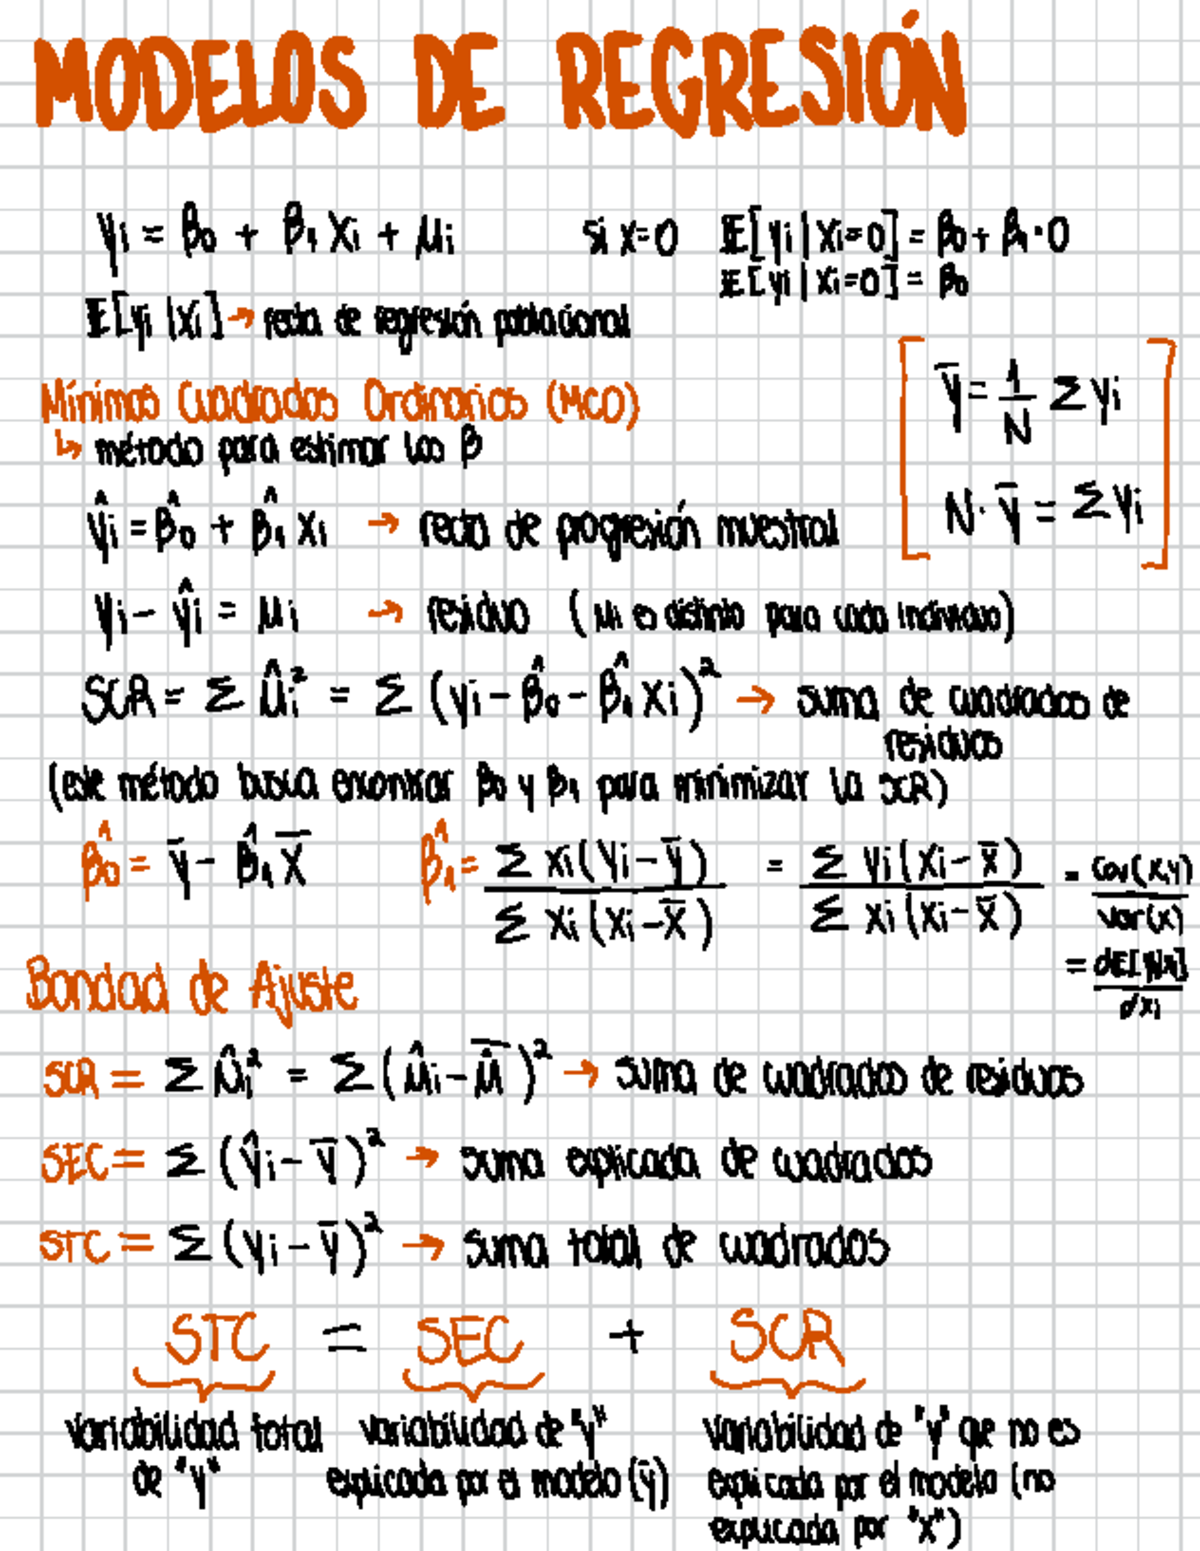 MODELOS DE REGRESIÓN
yi = β0 + β1 xi + μi   si x=0   E[yi | xi=0] = β0 + β1·0
E[yi | xi=0] = β0
E[yi | xi] → recta de regresión poblacional
Mínimos Cuadrados Ordinarios (MCO)
↳ método para estimar los β
ȳ = 1/N Σ yi
N·ȳ = Σ yi
ŷi = β̂0 + β̂1 xi → recta de progresión muestral
yi − ŷi = μi → residuo (μi es distinto para cada individuo)
SCR = Σ ûi² = Σ (yi − β̂0 − β̂1 xi)² → suma de cuadrados de
residuos
(este método busca encontrar β0 y β1 para minimizar la SCR)
β̂0 = ȳ − β̂1 x̄   β̂1 = Σ xi(yi − ȳ) / Σ xi(xi − x̄) = Σ yi(xi − x̄) / Σ xi(xi − x̄) = Cov(x,y) / Var(x)
= dE[y|x] / dxi
Bondad de Ajuste
SCR = Σ ûi² = Σ (μ̂i − μ̂̄)² → suma de cuadrados de residuos
SEC = Σ (ŷi − ȳ)² → suma explicada de cuadrados
STC = Σ (yi − ȳ)² → suma total de cuadrados
STC = SEC + SCR
variabilidad total
de "y"
variabilidad de "y"
explicada por el modelo (ȳ)
variabilidad de "y" que no es
explicada por el modelo (no
explicada por "x")